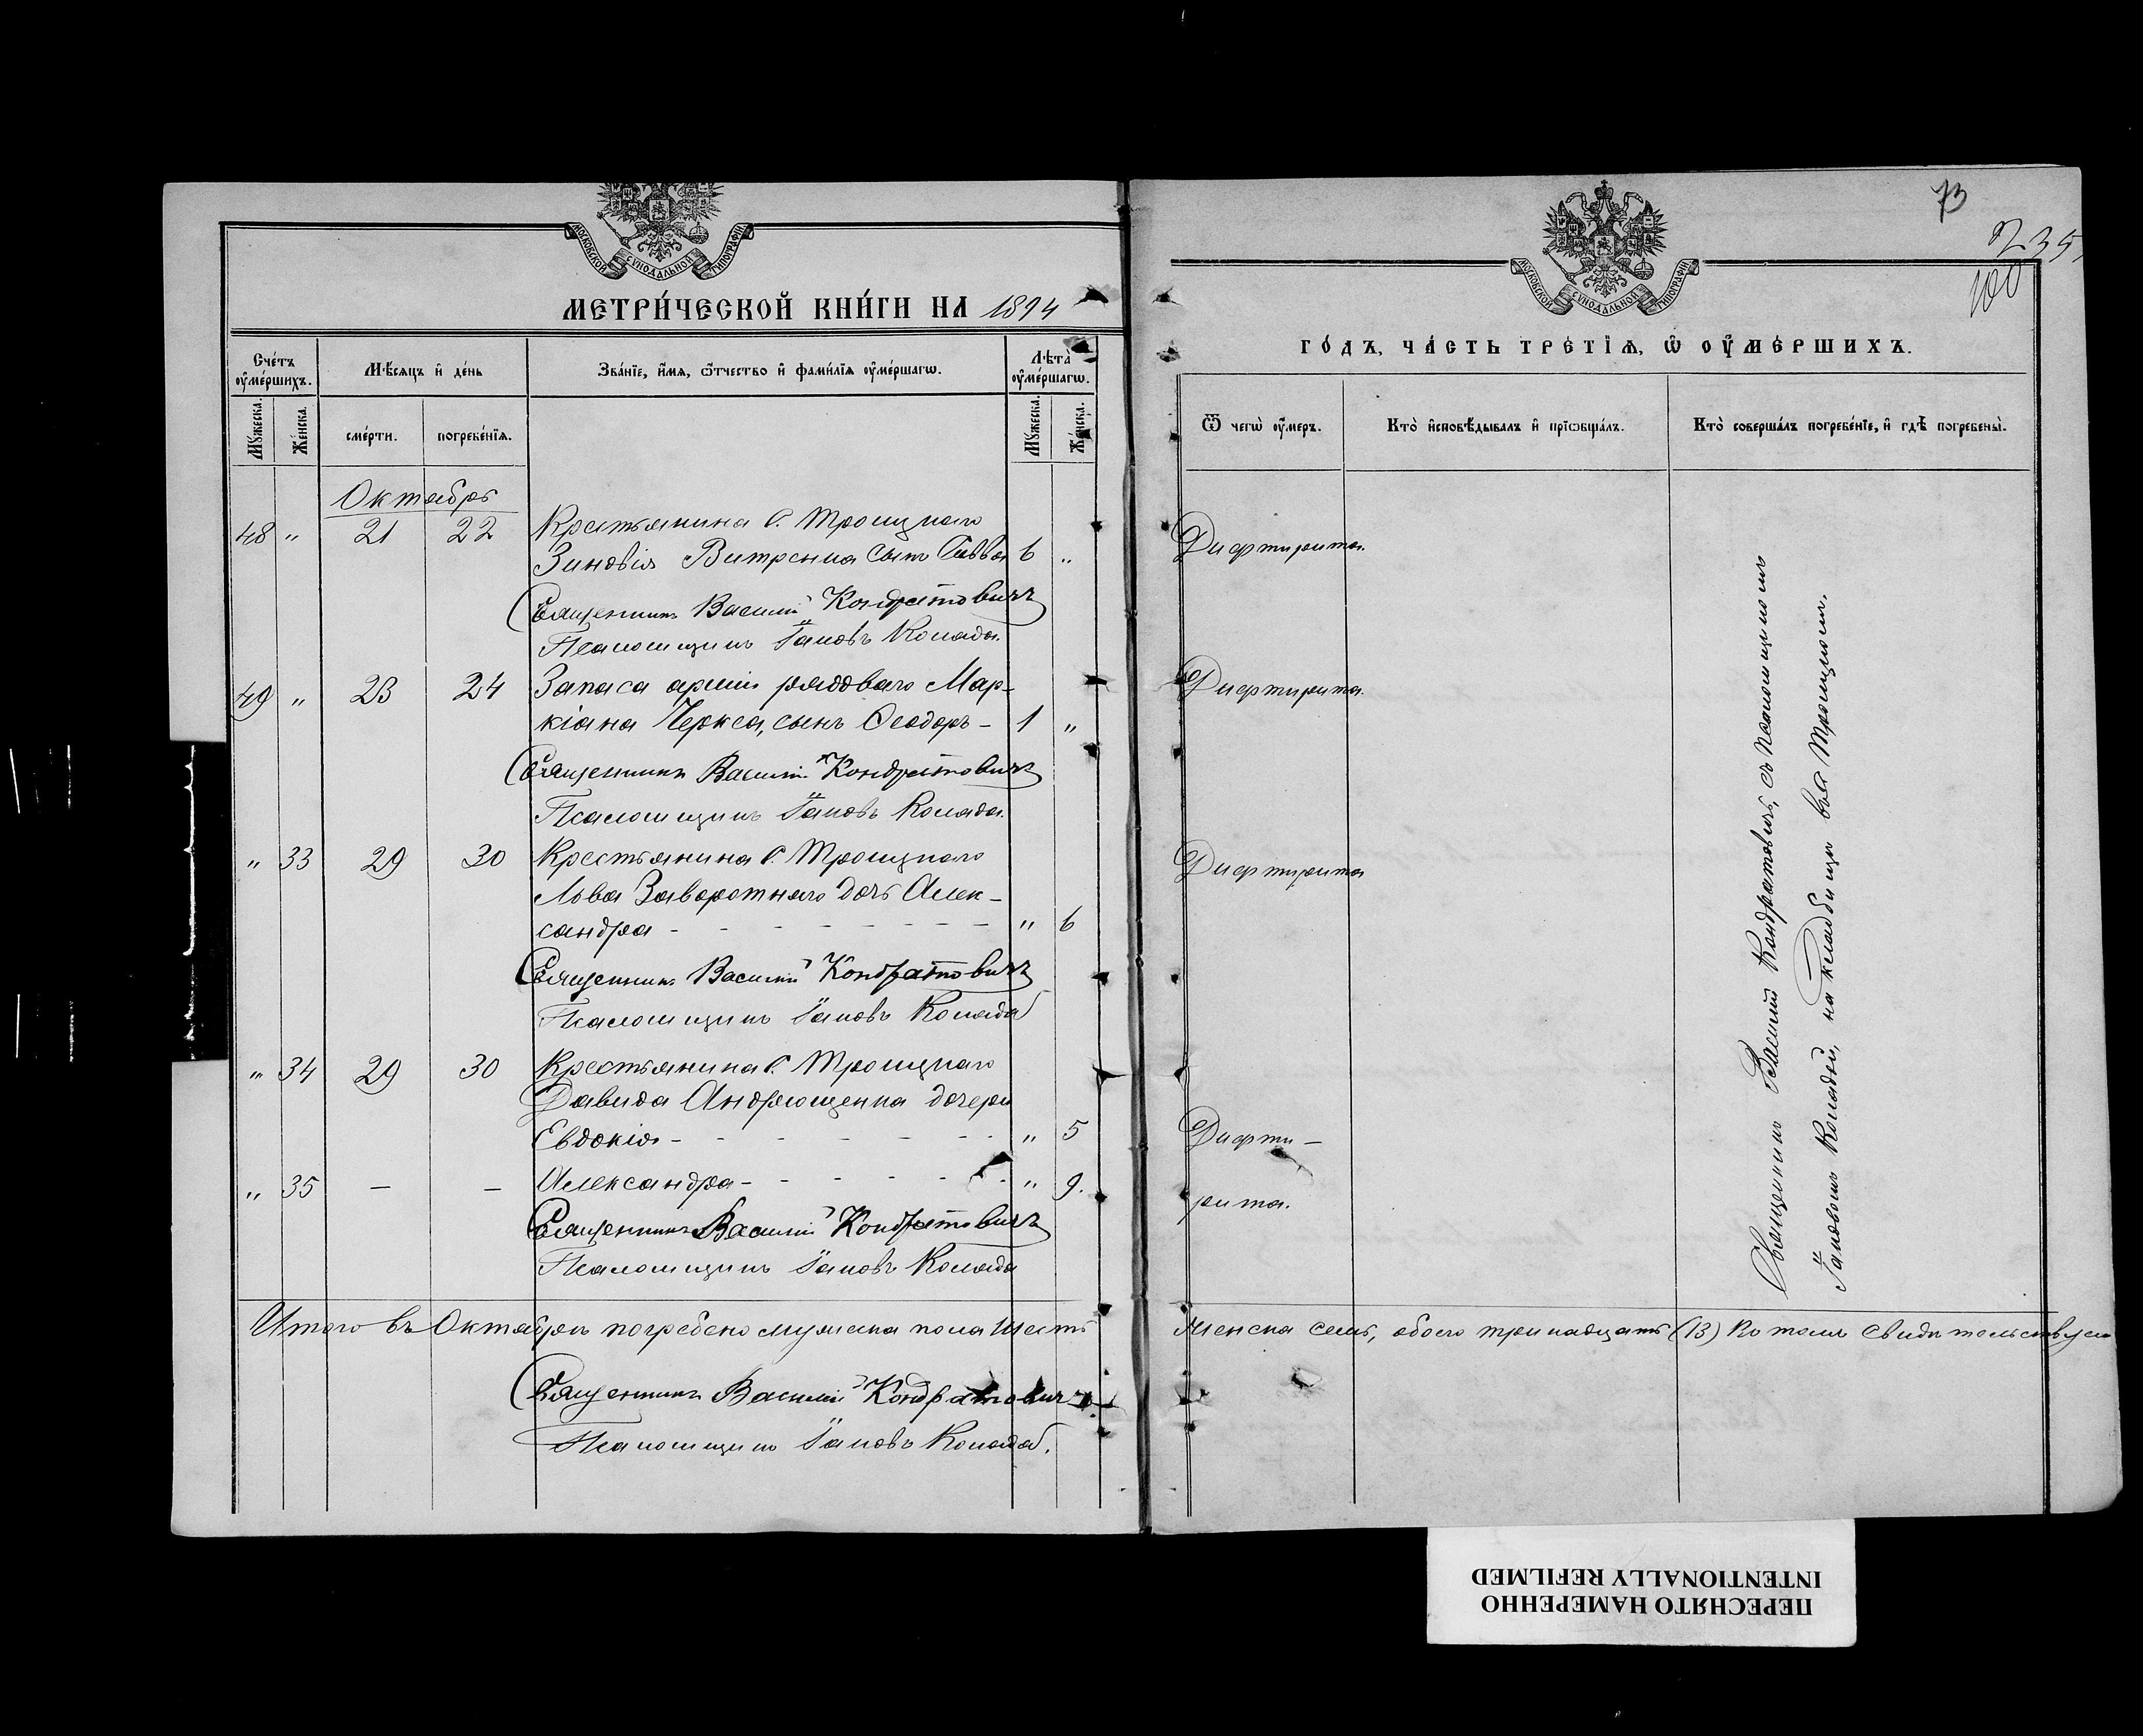 МОСКОВСКОЙ СѴНОДАЛЬНОЙ ТИПОГРАФІИ
МЕТРИ́ЧЕСКОЙ КНИ́ГИ НА 1894
Сче́тъ ᲂу҆ме́ршихъ.
Мѣ́сѧцъ и҆ де́нь
Зва́нїе, и҆́мѧ, ѻ҆́тчество и҆ фами́лїѧ ᲂу҆ме́ршагѡ.
Лѣ́та ᲂу҆ме́ршагѡ.
Мꙋ́жеска.
Же́нска.
сме́рти.
погребе́нїѧ.
Мꙋ́жеска.
Же́нска.
Октябрь
48 " 21 22 Крестьянина с. Троицкаго
Зиновія Витренка сынъ Савва 6 "
Священникъ Василій Кондратовичъ
Псаломщикъ Іаковъ Коляда.
49 " 23 24 Запаса арміи рядоваго Мар-
кіана Черкса, сынъ Ѳеодоръ - 1 "
Священникъ Василій Кондратовичъ
Псаломщикъ Іаковъ Коляда.
" 33 29 30 Крестьянина с. Троицкаго
Льва Заворотняго дочь Алек-
сандра - - - - - - - - " 6
Священникъ Василій Кондратовичъ
Псаломщикъ Іаковъ Коляда
" 34 29 30 Крестьянина с. Троицкаго
Давида Андрющенка дочери
Евдокія - - - - - - - " 5
" 35 — — Александра - - - - - - " 9.
Священникъ Василій Кондратовичъ
Псаломщикъ Іаковъ Коляда
Итого въ Октябрѣ погребено мужеска пола шесть
Священникъ Василій Кондратовичъ
Псаломщикъ Іаковъ Коляда.
73
235
100
МОСКОВСКОЙ СѴНОДАЛЬНОЙ ТИПОГРАФІИ
ГО́ДЪ, ЧА́СТЬ ТРЕ́ТЇѦ, Ѡ҆ ОУ҆МЕ́РШИХЪ.
Ѿ чегѡ̀ ᲂу҆́меръ.
Кто̀ и҆сповѣ́дывалъ и҆ прїѡбща́лъ.
Кто̀ соверша́лъ погребе́нїе, и҆ гдѣ̀ погребены̀.
Дифтирита.
Дифтирита.
Дифтирита
Дифти-
рита.
Священникъ Василій Кондратовичъ, съ псаломщикомъ
Іаковомъ Колядой, на кладбищѣ въ с. Троицкомъ.
Женска семь, обоего тринадцать (13) Въ томъ свидѣтельствуемъ
ПЕРЕСНЯТО НАМЕРЕННО
INTENTIONALLY REFILMED